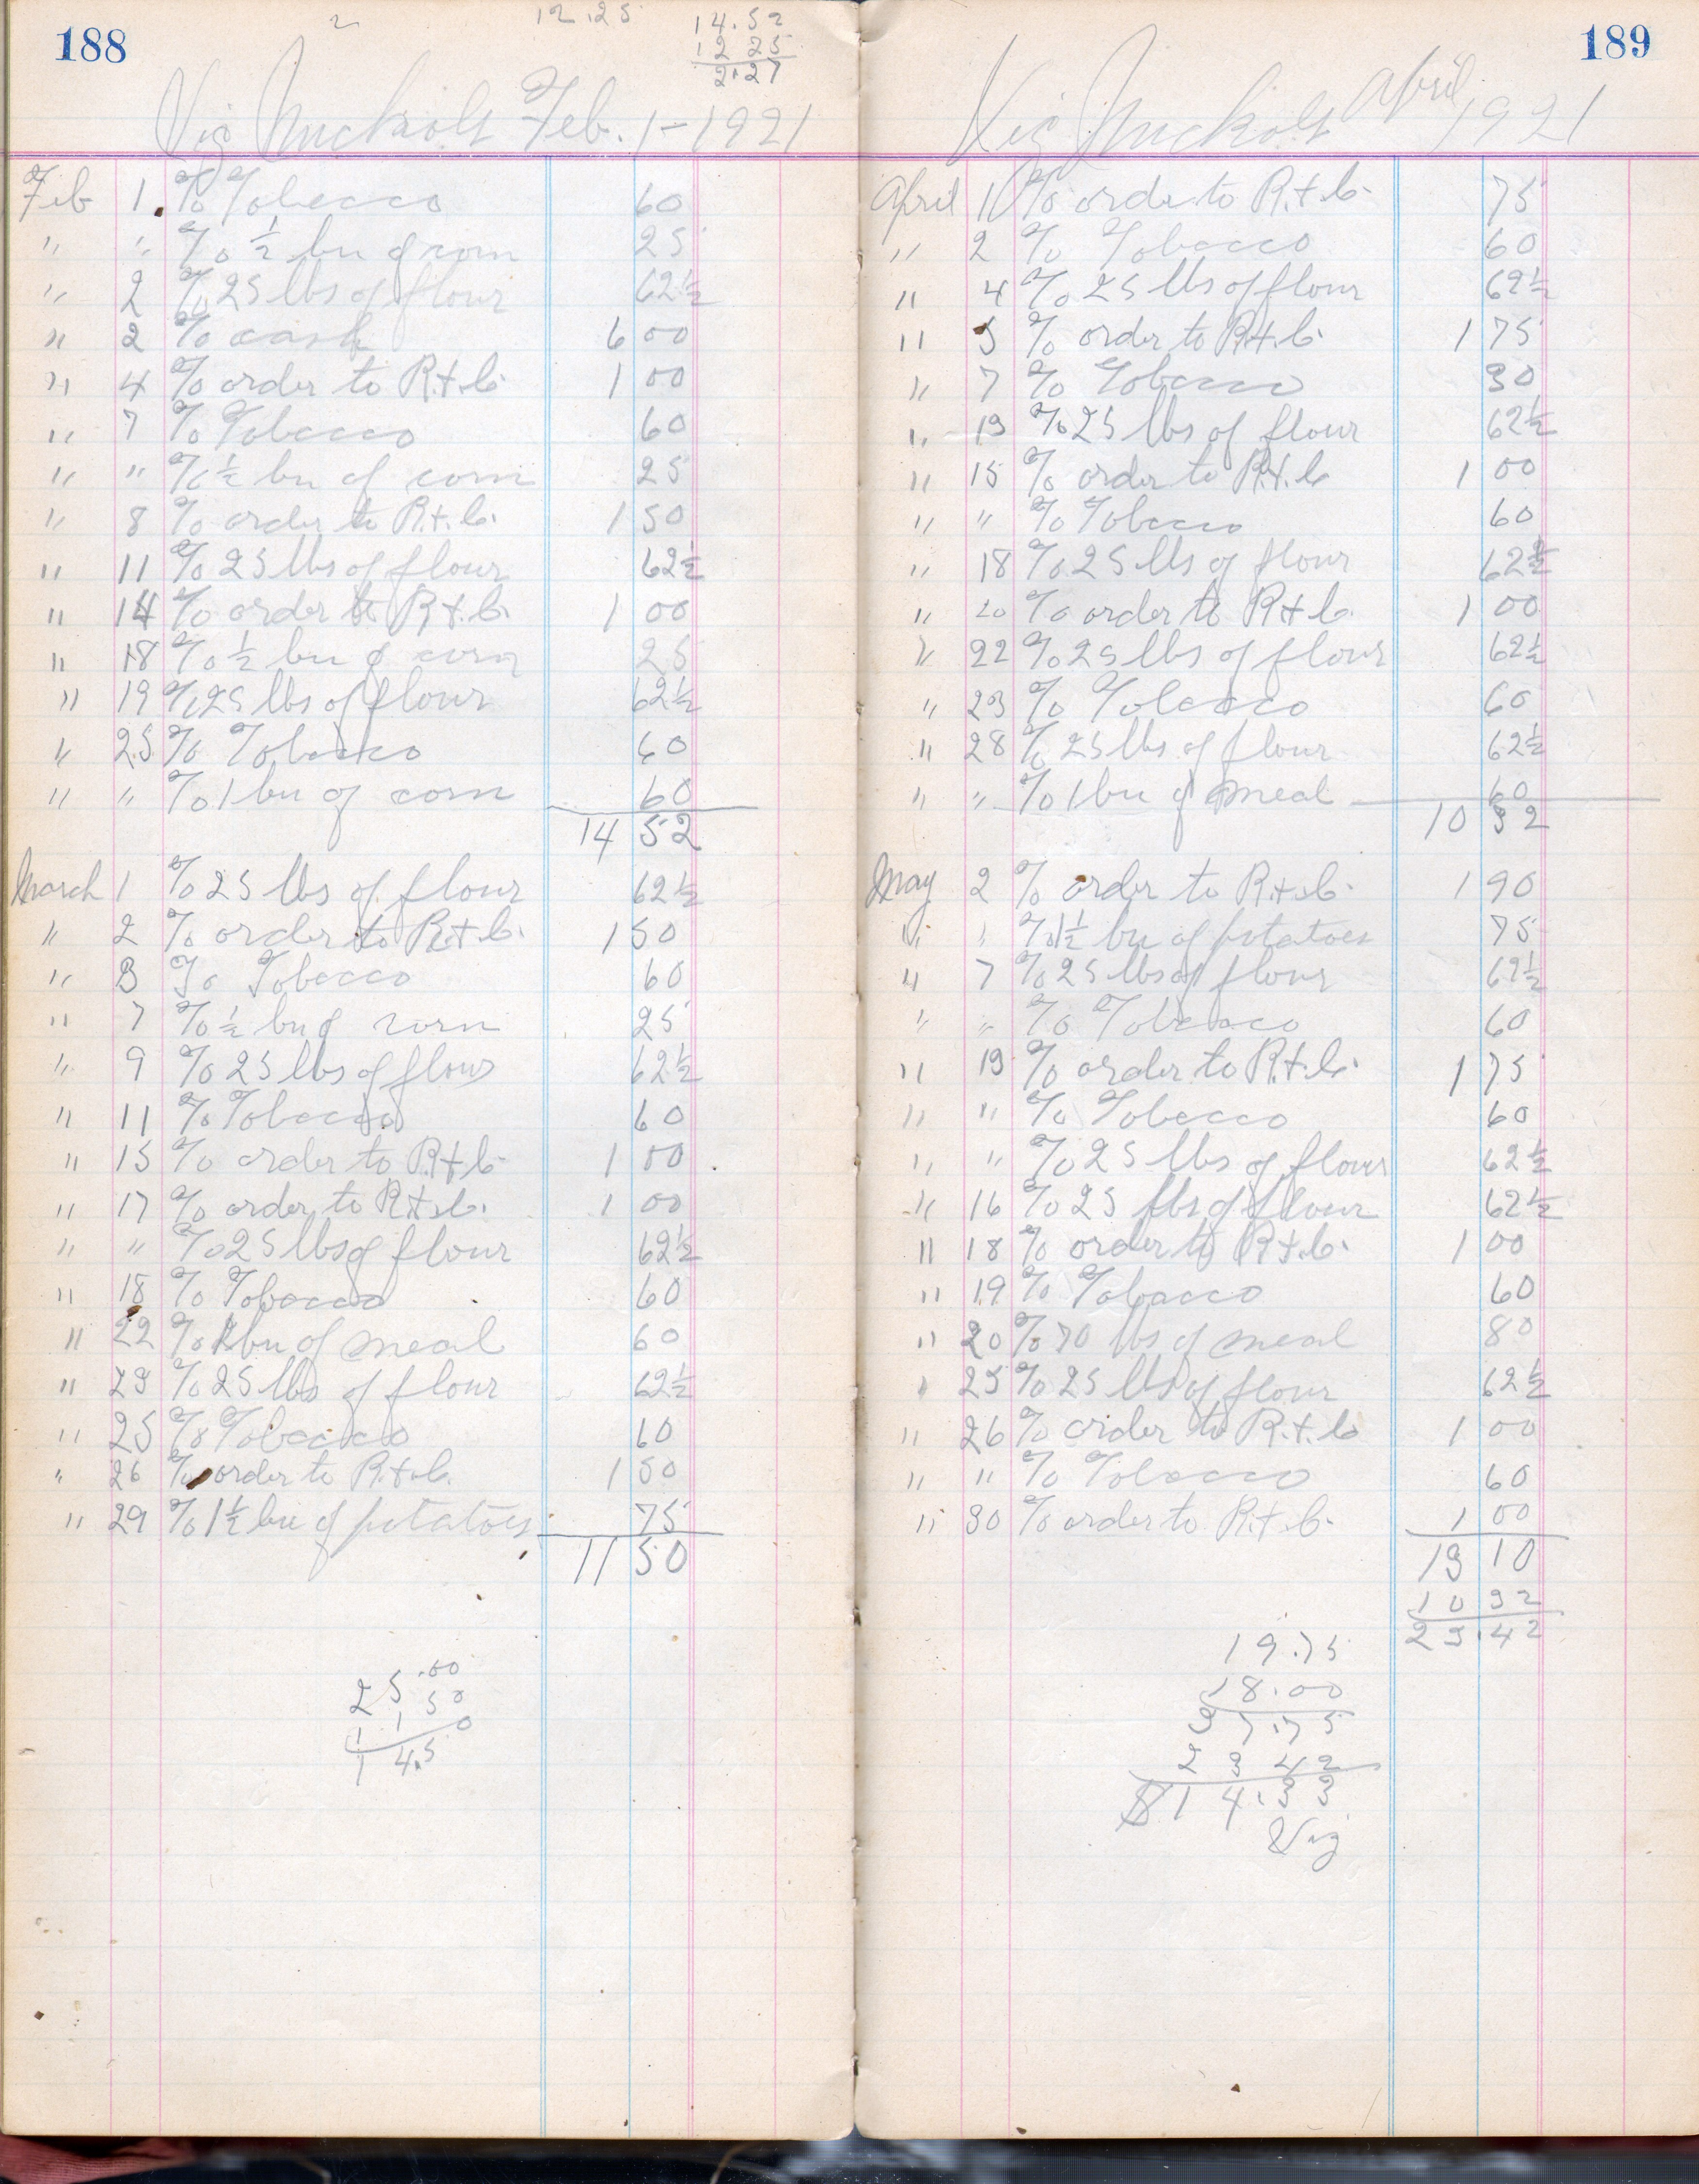 188
12.25
14.52
12 25
2.27
Vig Nuckols Feb. 1-1921
Feb 1. To Tobacco 60
" " To ½ bu of corn 25
" 2 To 25 lbs of flour 62½
" 2 To cash 6 00
" 4 To order to R.+.C. 1 00
" 7 To Tobacco 60
" " To ½ bu of corn 25
" 8 To order to R.+.C. 1 50
" 11 To 25 lbs of flour 62½
" 14 To order to R.+.C. 1 00
" 18 To ½ bu of corn 25
" 19 To 25 lbs of flour 62½
" 25 To Tobacco 60
" " To 1 bu of corn 60
14 52
March 1 To 25 lbs of flour 62½
" 2 To order to R.+.C. 1 50
" 3 To Tobacco 60
" 7 To ½ bu of corn 25
" 9 To 25 lbs of flour 62½
" 11 To Tobacco 60
" 15 To order to R.+.C. 1 00
" 17 To order to R.+.C. 1 00
" " To 25 lbs of flour 62½
" 18 To Tobacco 60
" 22 To 1 bu of meal 60
" 23 To 25 lbs of flour 62½
" 25 To Tobacco 60
" 26 To order to R.+.C. 1 50
" 29 To 1½ bu of potatoes 75
11 50
25 .00
11 50
14.50
189
Vig Nuckols April 1921
April 1 To order to R.+.C. 75
" 2 To Tobacco 60
" 4 To 25 lbs of flour 62½
" 5 To order to R.+.C. 1 75
" 7 To Tobacco 30
" 13 To 25 lbs of flour 62½
" 15 To order to R.+.C 1 00
" " To Tobacco 60
" 18 To 25 lbs of flour 62½
" 20 To order to R.+.C. 1 00
" 22 To 25 lbs of flour 62½
" 23 To Tobacco 60
" 28 To 25 lbs of flour 62½
" " To 1 bu of meal 60
10 32
May 2 To order to R.+.C. 1 90
" " To 1½ bu of potatoes 75
" 7 To 25 lbs of flour 62½
" " To Tobacco 60
" 13 To order to R.+.C. 1 75
" " To Tobacco 60
" " To 25 lbs of flour 62½
" 16 To 25 lbs of flour 62½
" 18 To order to R.+.C. 1 00
" 19 To Tobacco 60
" 20 To 70 lbs of meal 80
" 25 To 25 lbs of flour 62½
" 26 To order to R.+.C 1 00
" " To Tobacco 60
" 30 To order to R.+.C. 1 00
13 10
10 32
23.42
19.75
18.00
37.75
23 42
$14.33
Vig